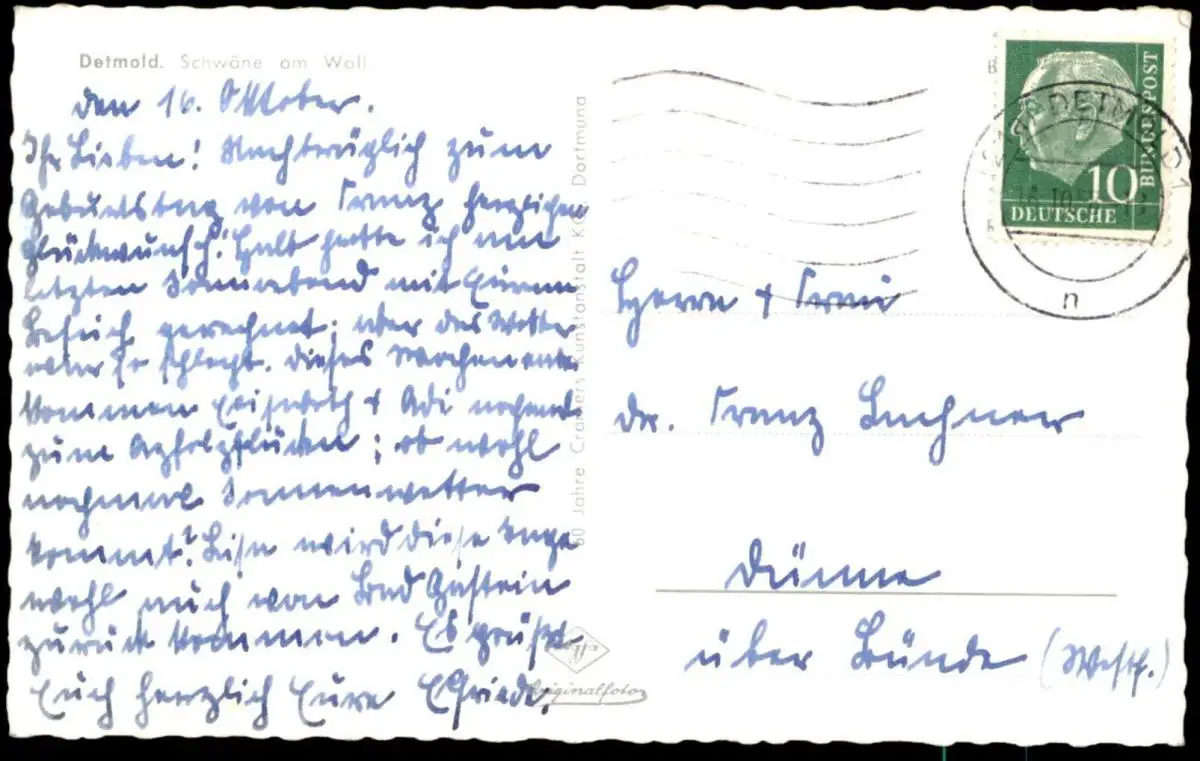 Detmold. Schwäne am Wall
den 16. Oktober.
Ihr Lieben! Nachträglich zum
Geburtstag von Franz herzlichen
Glückwunsch! Halb hatte ich am
letzten Sonnabend mit Eurem
Besuch gerechnet; aber das Wetter
war so schlecht. Dieses Wochenende
kommen Elisabeth + Adi nochmal
zum Apfelpflücken; ob wohl
nochmal Sonnenwetter
kommt? wird diese Tage
wohl auch von Bad Gastein
zurück kommen. Es grüßt
Euch herzlich Eure Elfriede.
60 Jahre Cramers Kunstanstalt KG, Dortmund
Agfa
Originalfoto
BUNDESPOST
10
DEUTSCHE
DETMOLD 1
16.10.5
n
Herrn + Frau
Dr. Franz Buchner
Dünne
über Bünde (Westf.)